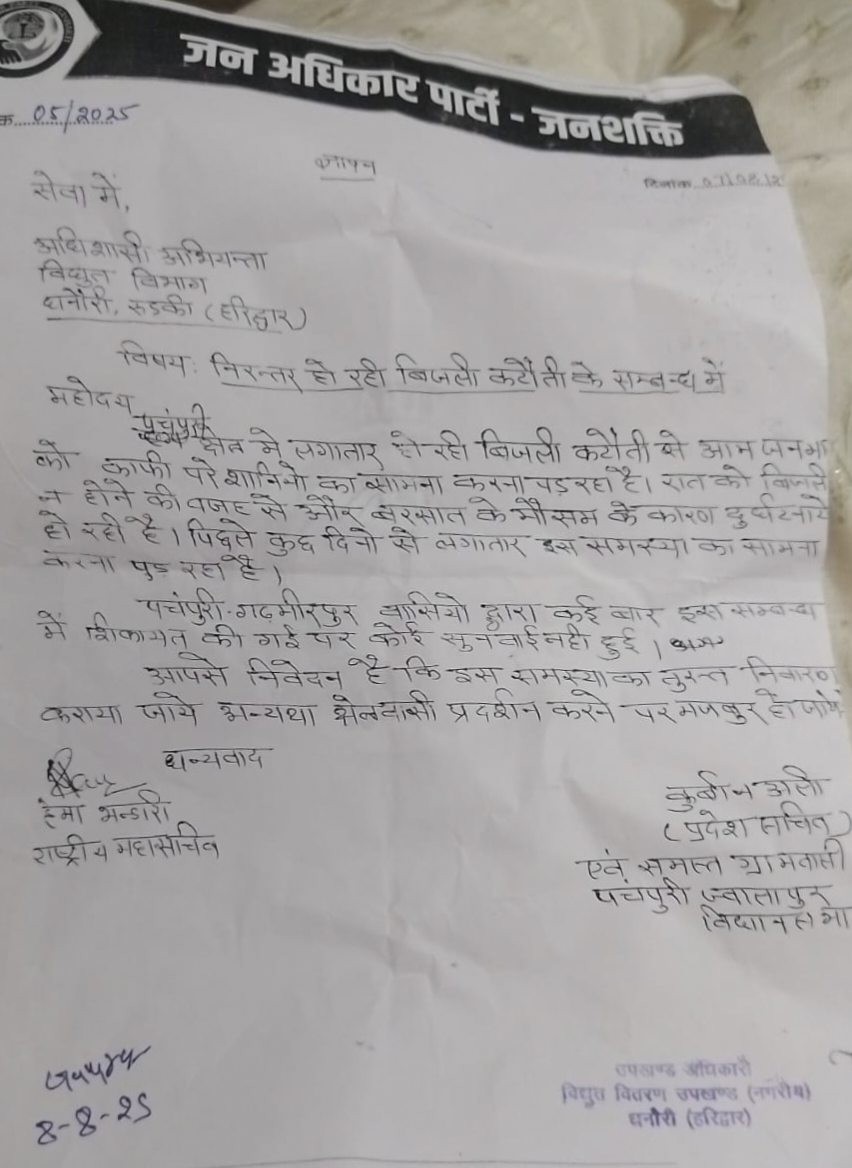 जन अधिकार पार्टी - जनशक्ति
05/2025
ज्ञापन
दिनांक
सेवा में,
अधिशासी अभियन्ता
विद्युत विभाग
धनौरी, रुडकी (हरिद्वार)
विषय: निरन्तर हो रही बिजली कटौती के सम्बन्ध में
महोदय
पचंपुरी
क्षेत्र मे लगातार हो रही बिजली कटौती से आम
को काफी परेशानियो का सामना करना पड रहा है। रात को बिजली
न होने की वजह से और बरसात के मौसम के कारण दुर्घटनाये
हो रही है। पिछले कुछ दिनो से लगातार इस समस्या का सामना
करना पड रहा है।
पचंपुरी-गढमीरपुर वासियो द्वारा कई बार इस सम्बन्ध
में शिकायत की गई पर कोई सुनवाई नही हुई।
आपसे निवेदन है कि इस समस्या का तुरन्त निवारण
कराया जाये अन्यथा क्षेत्रवासी प्रदर्शन करने पर मजबुर हो
धन्यवाद
हेमा भन्डारी
राष्ट्रीय महासचिव
कुर्बान अली
(प्रदेश सचिव)
एवं समस्त ग्रामवासी
पचंपुरी ज्वालापुर
विधानसभा
8-8-25
उपखण्ड अधिकारी
विद्युत वितरण उपखण्ड (नगरीय)
धनौरी (हरिद्वार)